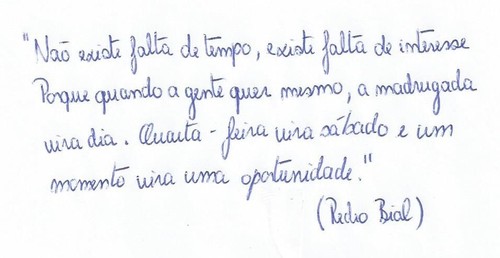 "Não existe falta de tempo, existe falta de interesse
Porque quando a gente quer mesmo, a madrugada
vira dia. Quarta-feira vira sábado e um
momento vira uma oportunidade."
(Pedro Bial)